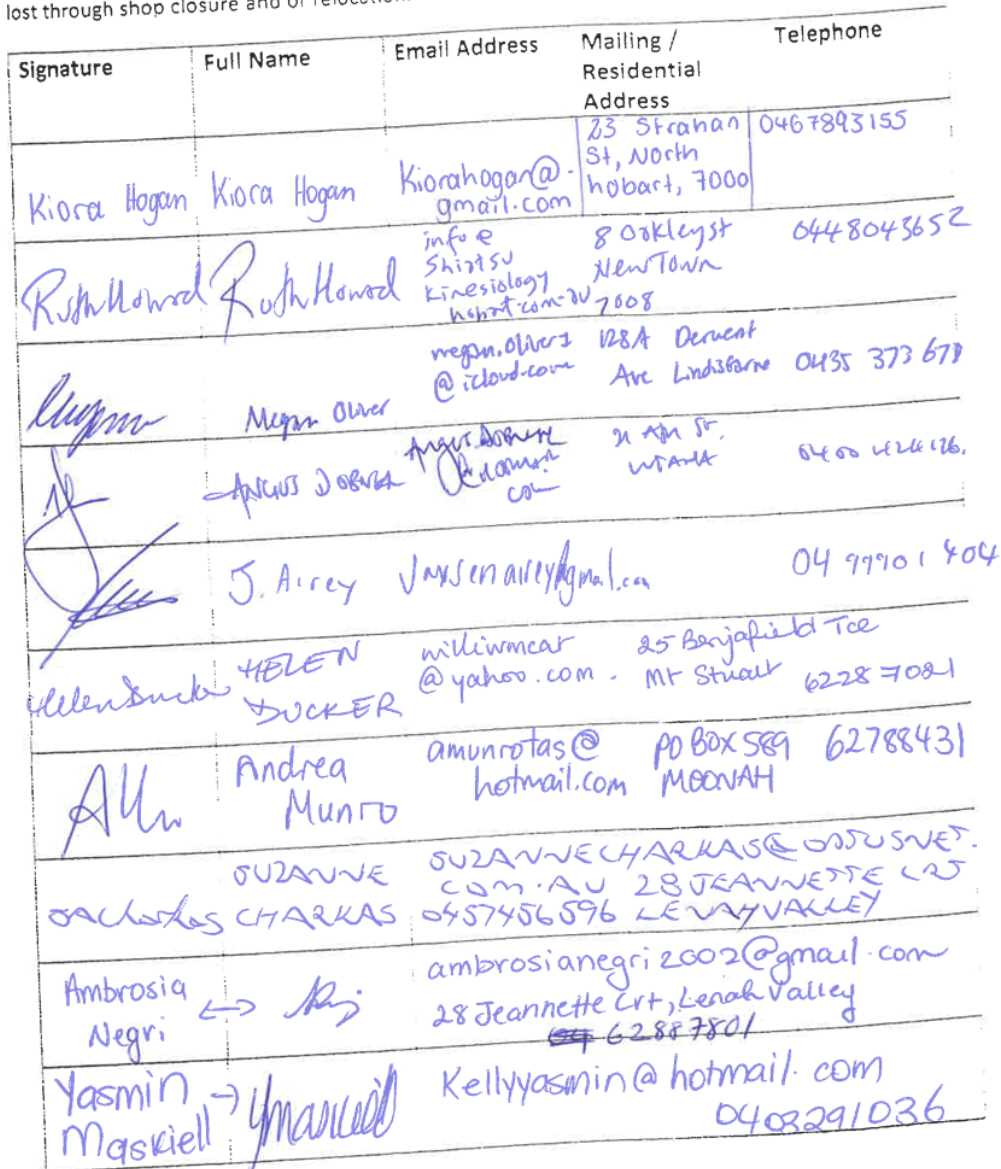 lost through shop closure and or
Signature Full Name Email Address Mailing / Residential Address Telephone
Kiora Hogan Kiora Hogan Kiorahogan@ gmail.com 23 Strahan St, North hobart, 7000 0467893155
Ruth Howard Ruth Howard info@ Shiatsu Kinesiology hobart.com.au 8 Oakley st New Town 7008 0448043652
Megan Oliver megan.oliver1 @icloud.com 128A Derwent Ave Lindisfarne 0435 373 671
ANGUS
J. Airey 04 99901 404
Helen Ducker HELEN DUCKER williwmcat @yahoo.com. 25 Benjafield Tce Mt Stuart 6228 7021
Andrea Munro amunrotas@ hotmail.com PO BOX 589 MOONAH 62788431
SUZANNE CHARKAS SUZANNECHARKAS@ COM.AU 28 JEANNETTE CRT 0457456596 LENAH VALLEY
Ambrosia Negri ↔ ambrosianegri2002@gmail.com 28 Jeannette Crt, Lenah Valley 62887801
Yasmin Maskiell → YMaskiell Kellyyasmin@hotmail.com 0403291036